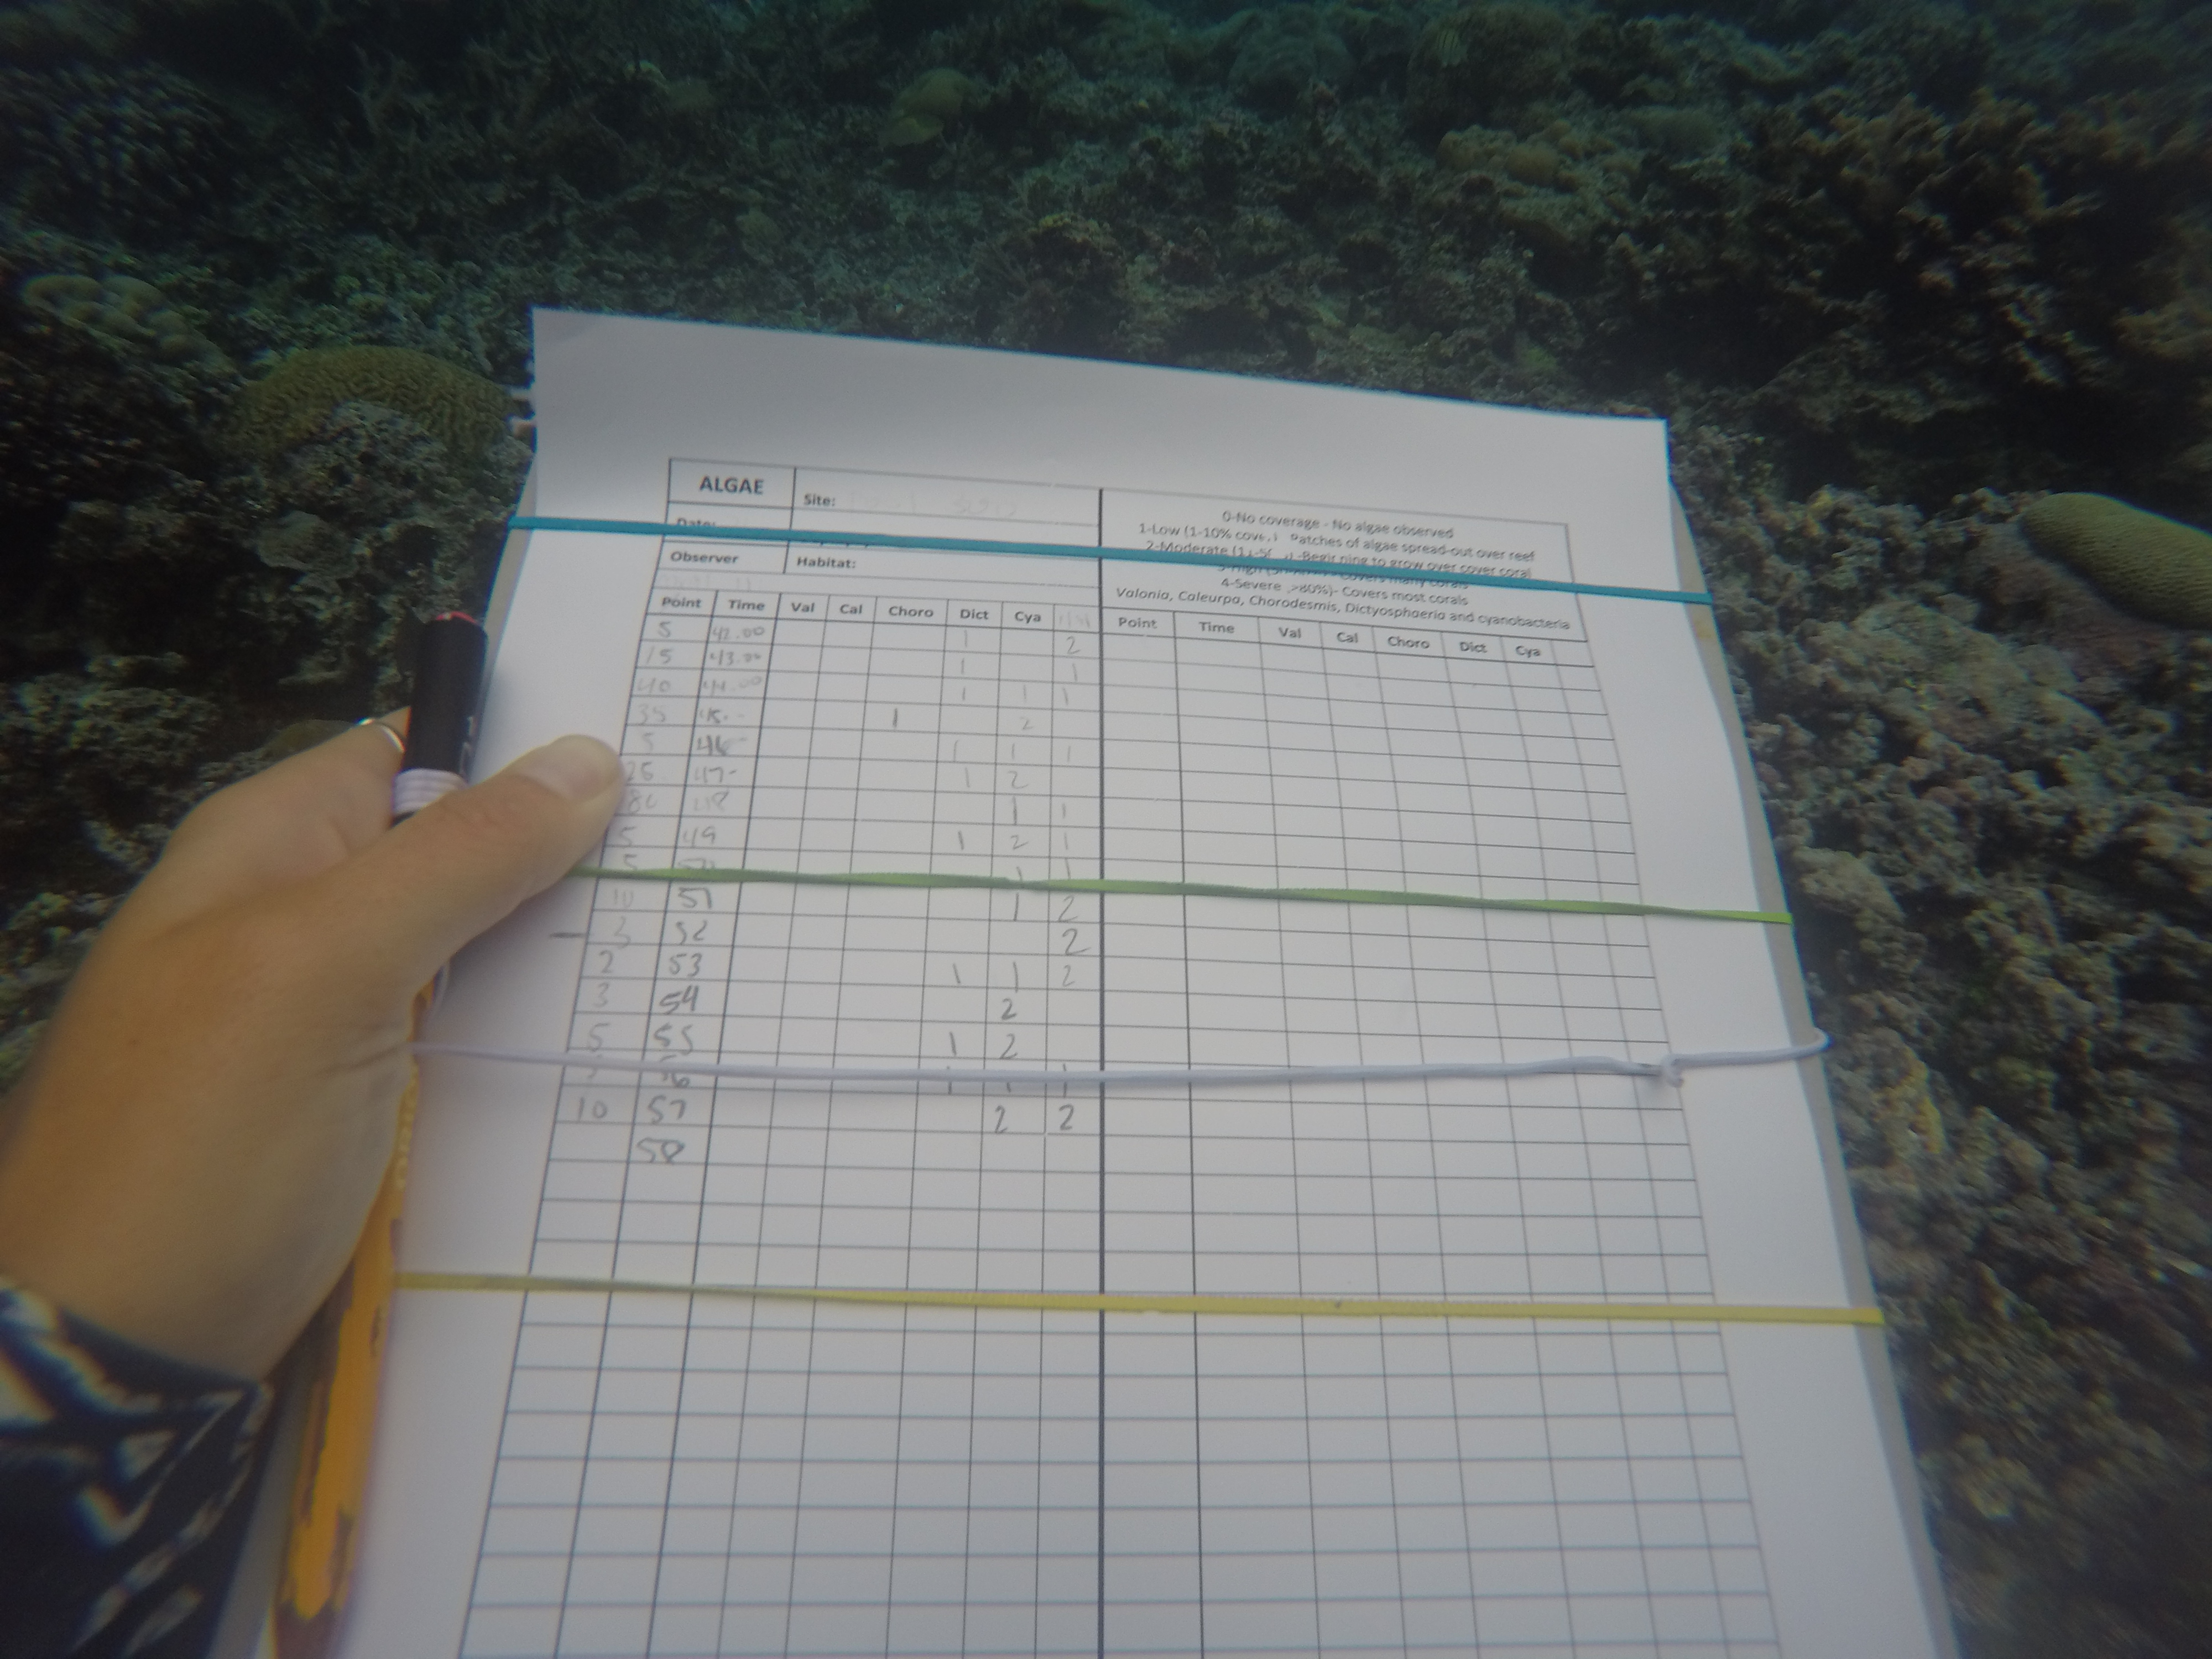 ALGAE Site:
Date:
Observer Habitat:
0-No coverage - No algae observed
1-Low (1-10% Patches of algae spread-out over reef
2-Moderate to grow over cover coral
Covers many corals
4-Severe >80%)- Covers most corals
Valonia, Caleurpa, Chorodesmis, Dictyosphaeria and cyanobacteria
Point Time Val Cal Choro Dict Cya
5 42.00 1 2
15 43.00 1 1
40 44.00 1 1 1
35 45.- 1 2
5 46- 1 1 1
25 47- 1 2
48 1 1
5 49 1 2 1
5 50 1 1
10 51 1 2
3 52 2
2 53 1 1 2
3 54 2
5 55 1 2
56 1 1 1
10 57 2 2
58
Point Time Val Cal Choro Dict Cya